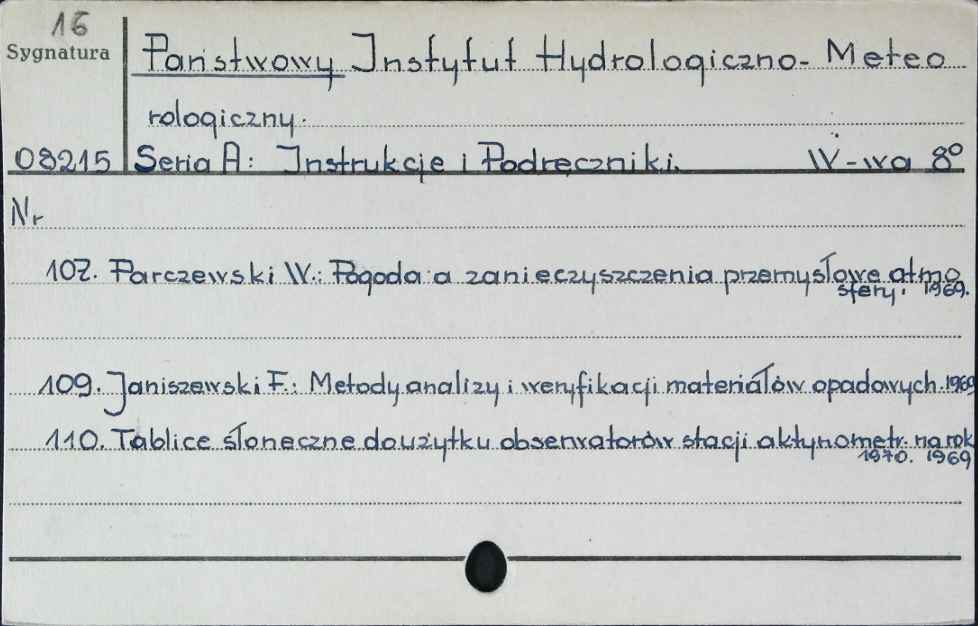 16
Sygnatura
Państwowy Instytut Hydrologiczno- Meteo
rologiczny.
08215 Seria A: Instrukcje i Podręczniki. W-wa 8º
Nr
107. Parczewski W.: Pogoda a zanieczyszczenia przemysłowe atmo
sfery. 1969.
109. Janiszewski F.: Metody analizy i weryfikacji materiałów opadowych. 1969
110. Tablice słoneczne do użytku obserwatorów stacji aktynometr. na rok
1970. 1969